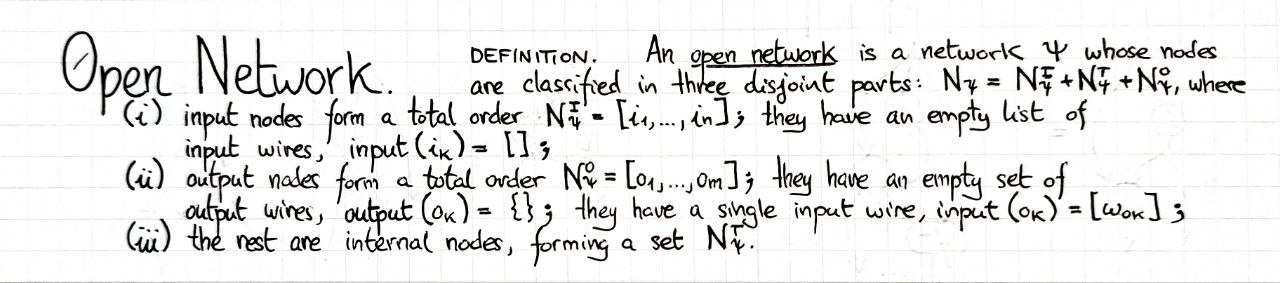 Open Network.
DEFINITION. An open network is a network Ψ whose nodes
are classified in three disjoint parts: N_Ψ = N_Ψ^I + N_Ψ^T + N_Ψ^O, where
(i) input nodes form a total order N_Ψ^I = [i₁,...,iₙ]; they have an empty list of
input wires, input(i_K) = [];
(ii) output nodes form a total order N_Ψ^O = [o₁,...,oₘ]; they have an empty set of
output wires, output(o_K) = {}; they have a single input wire, input(o_K) = [w_{oK}];
(iii) the rest are internal nodes, forming a set N_Ψ^T.